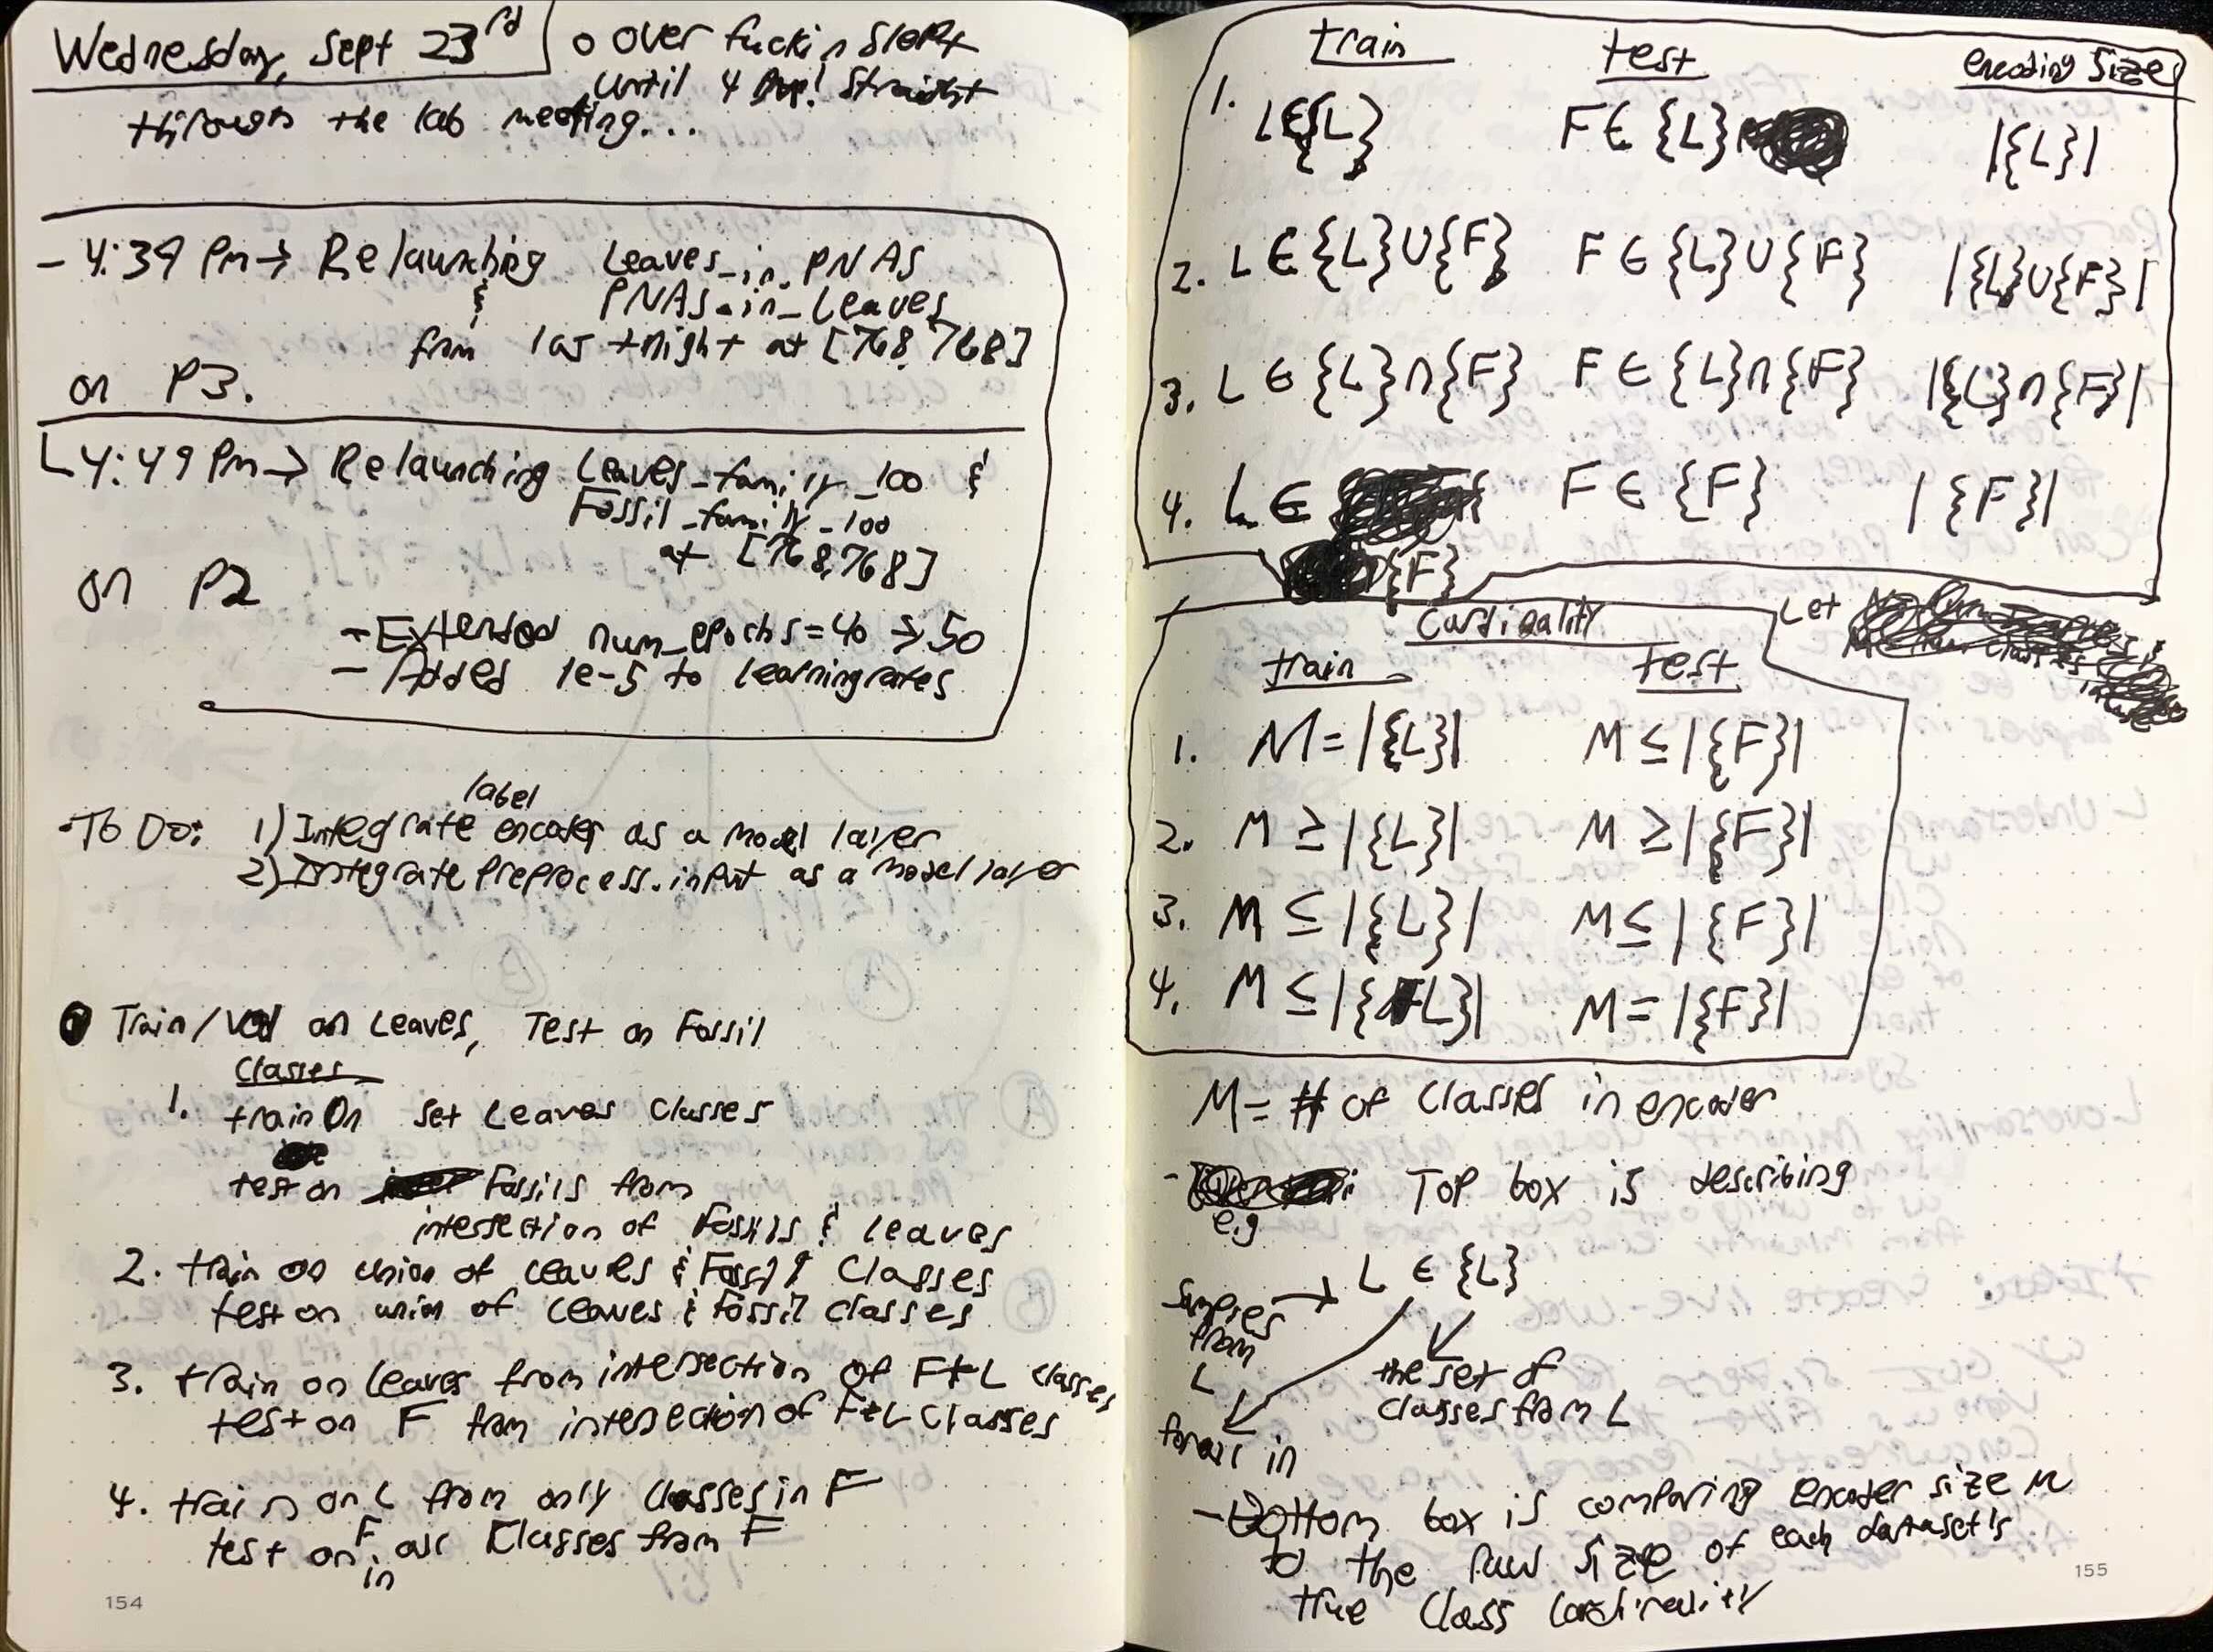 Wednesday, Sept 23rd
o over fuckin slept
until 4 pm! Straight
through the lab meeting...
- 4:39 Pm → Relaunching Leaves_in_PNAS
& PNAS_in_Leaves
from last night at [768,768]
on P3.
4:49 Pm → Relaunching Leaves_family_100 &
Fossil_family_100
at [768,768]
on P2
- Extended num_epochs=40 → 50
- Added 1e-5 to learning rates
label
To Do: 1) Integrate encoder as a model layer
2) Integrate preprocess_input as a model layer
Train/Val on Leaves, Test on Fossil
Classes
1. train on set Leaves classes
test on Fossils from
intersection of Fossils & Leaves
2. train on union of Leaves & Fossil Classes
test on union of Leaves & Fossil classes
3. train on leaves from intersection of F+L classes
test on F from intersection of F+L Classes
4. train on L from only classes in F
test on F in all Classes from F
154
train test encoding size
1. L∈{L} F∈{L} |{L}|
2. L∈{L}∪{F} F∈{L}∪{F} |{L}∪{F}|
3. L∈{L}∩{F} F∈{L}∩{F} |{L}∩{F}|
4. L∈ F∈{F} |{F}|
{F}
Cardinality
Let
train test
1. M=|{L}| M≤|{F}|
2. M≥|{L}| M≥|{F}|
3. M≤|{L}| M≤|{F}|
4. M≤|{L}| M=|{F}|
M = # of classes in encoder
- Top box is describing
e.g
L ∈ {L}
Samples
from
L
the set of
classes from L
-Bottom box is comparing encoder size M
to the raw size of each dataset's
true class cardinality
155